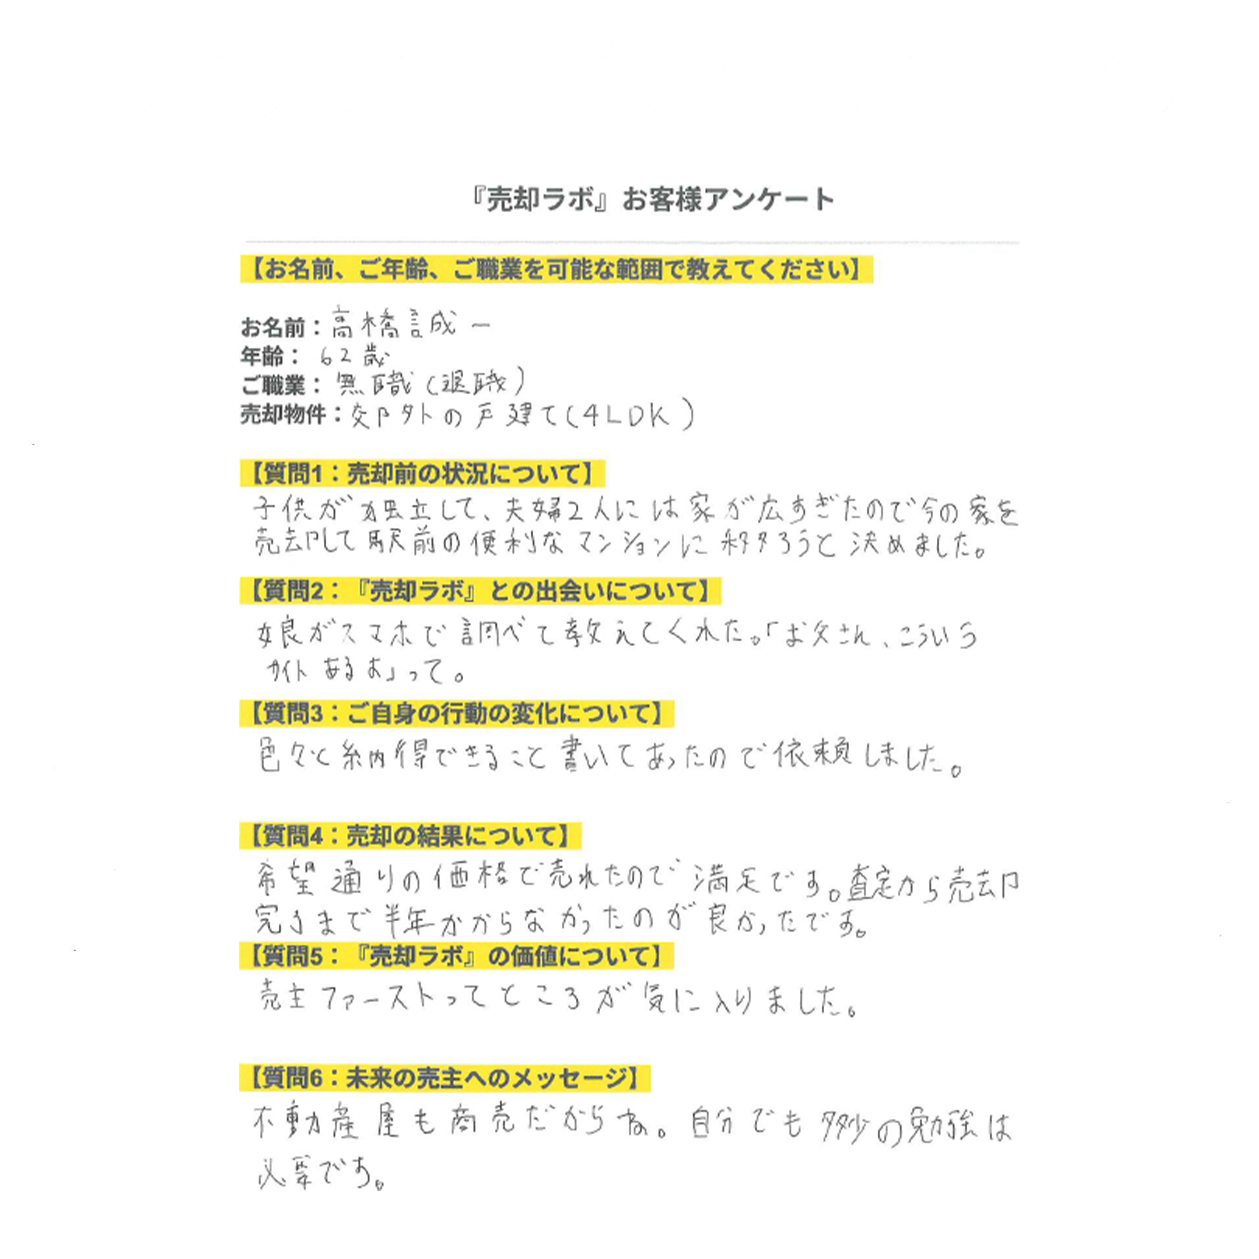 『売却ラボ』お客様アンケート
【お名前、ご年齢、ご職業を可能な範囲で教えてください】
お名前：高橋誠一
年齢： 62歳
ご職業：無職（退職）
売却物件：郊外の戸建て（4LDK）
【質問1：売却前の状況について】
子供が独立して、夫婦2人には家が広すぎたので今の家を
売却して駅前の便利なマンションに移ろうと決めました。
【質問2：『売却ラボ』との出会いについて】
娘がスマホで調べて教えてくれた。「お父さん、こういう
サイトあるよ」って。
【質問3：ご自身の行動の変化について】
色々と納得できること書いてあったので依頼しました。
【質問4：売却の結果について】
希望通りの価格で売れたので満足です。査定から売却
完了まで半年かからなかったのが良かったです。
【質問5：『売却ラボ』の価値について】
売主ファーストってところが気に入りました。
【質問6：未来の売主へのメッセージ】
不動産屋も商売だからね。自分でも多少の勉強は
必要です。